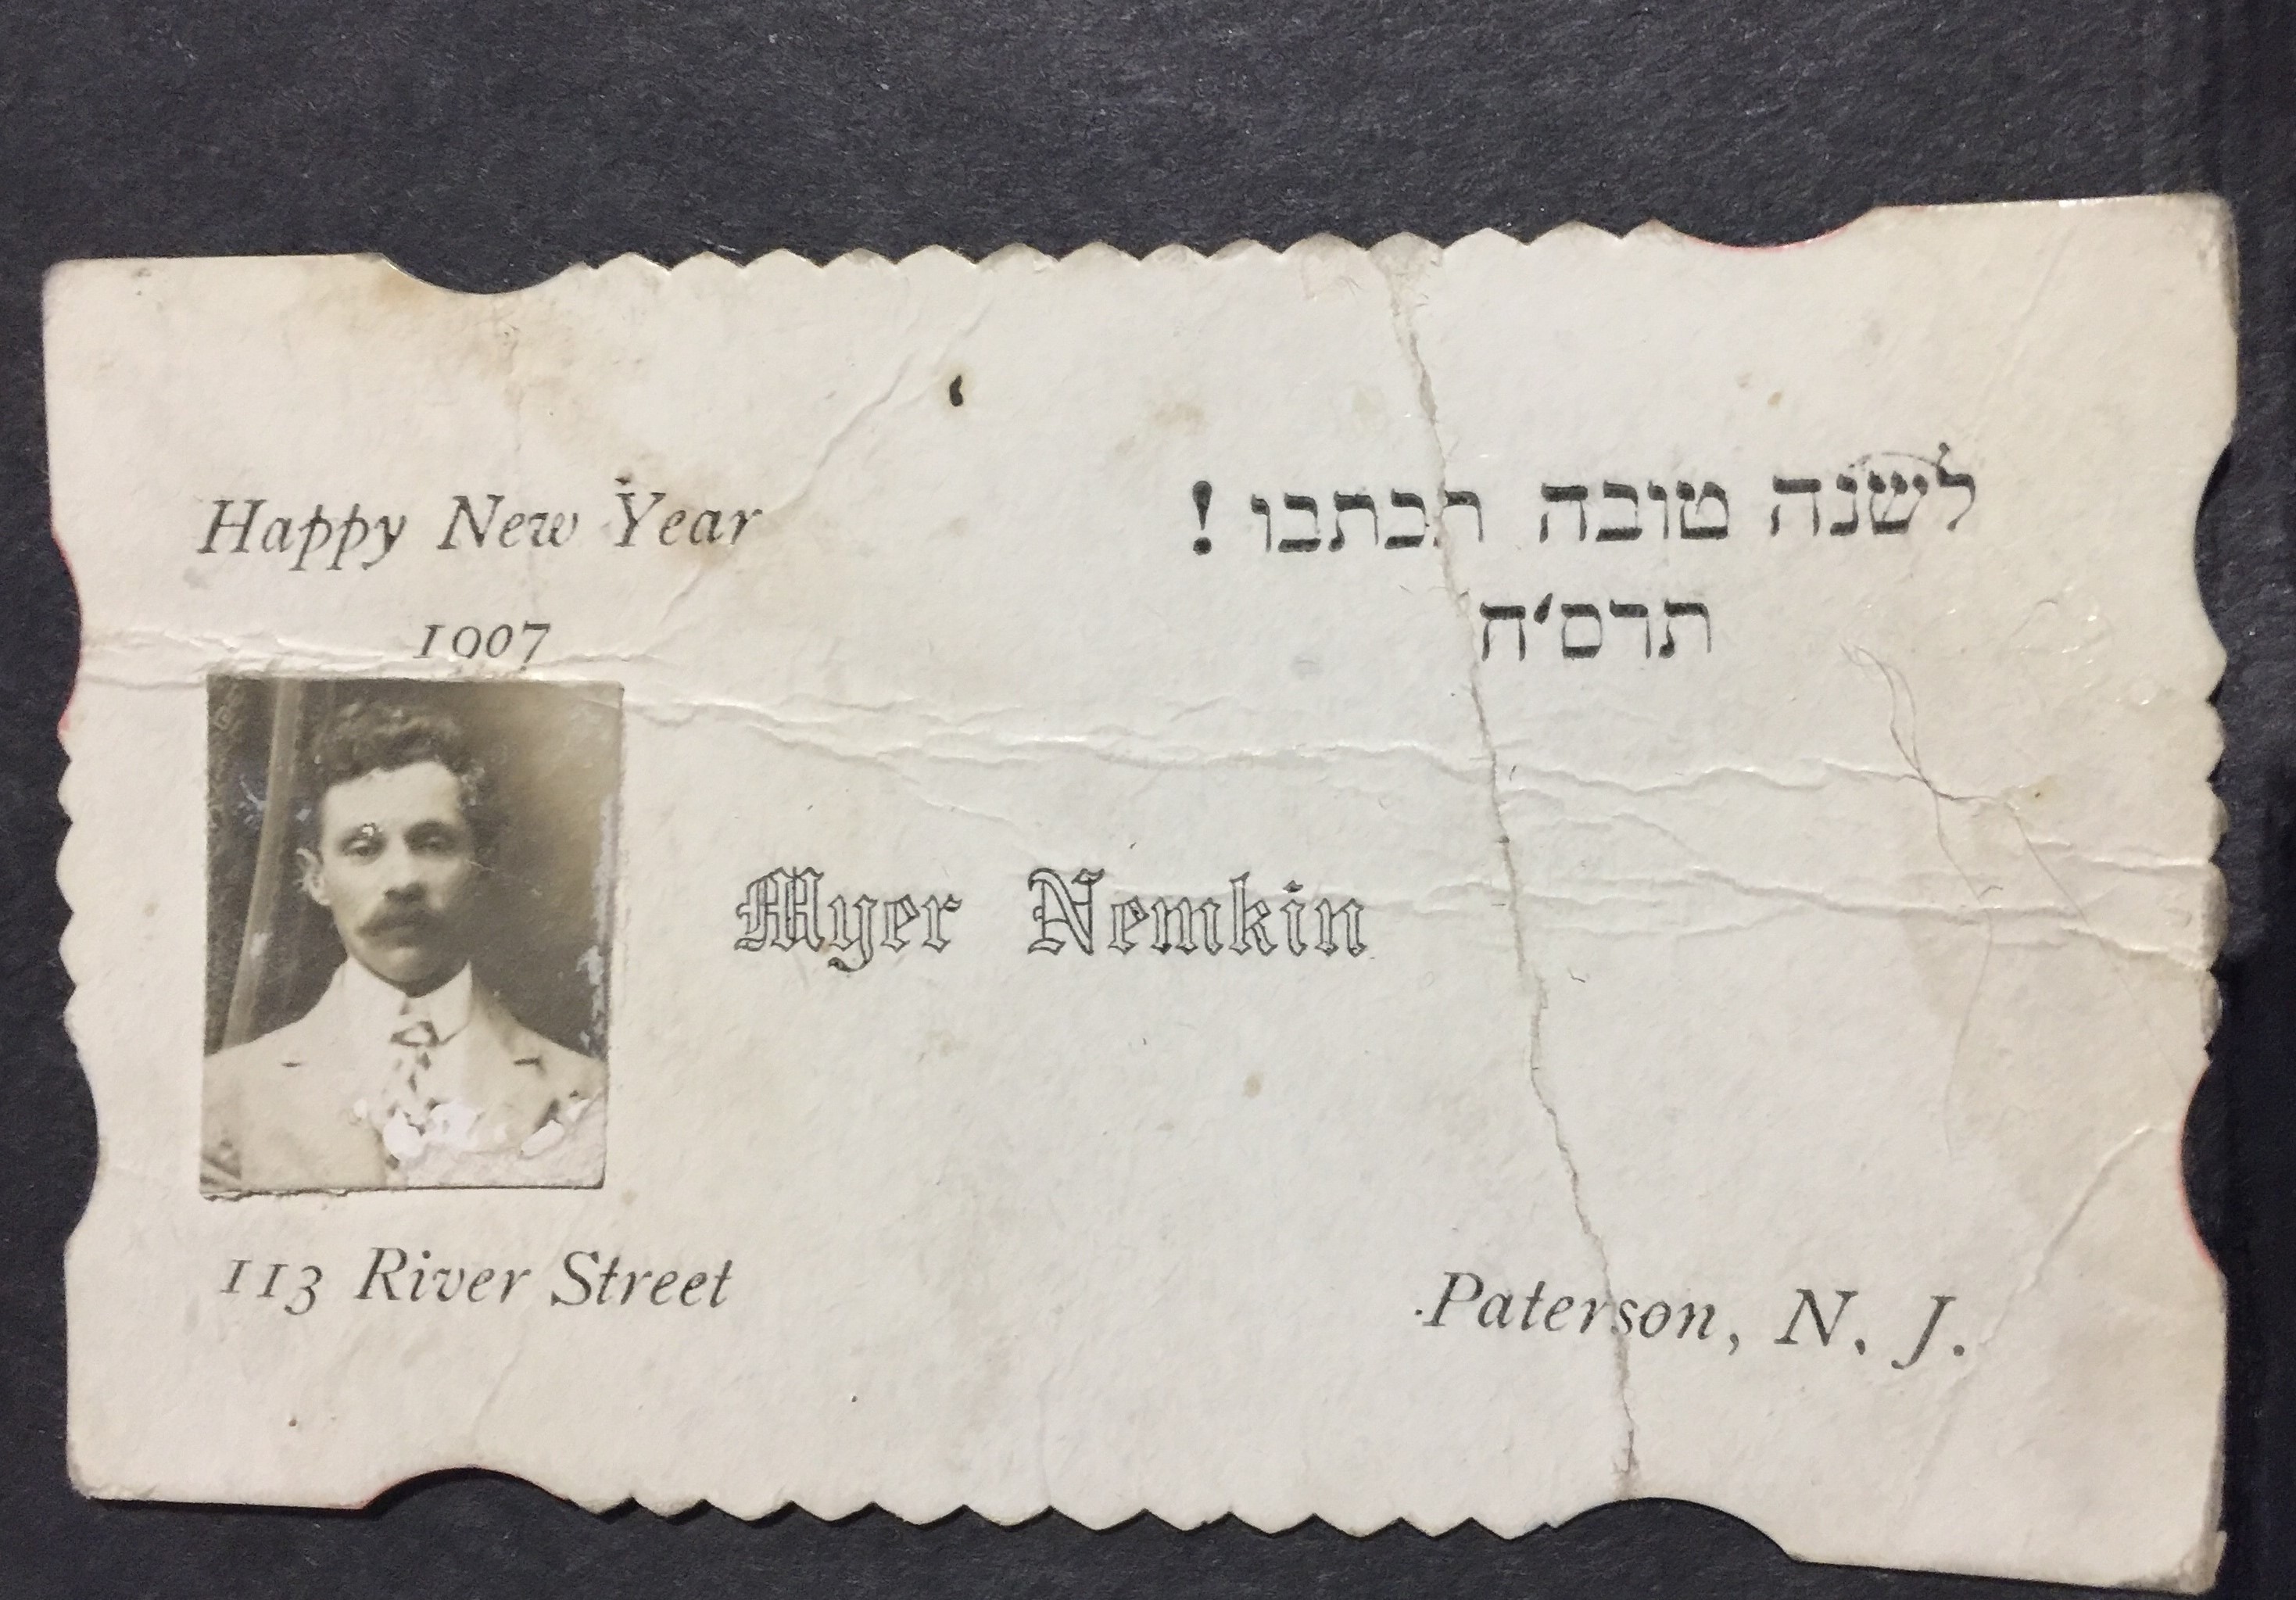 Happy New Year
1907
לשנה טובה תכתבו !
תרס'ח
Myer Nemkin
113 River Street
Paterson, N. J.